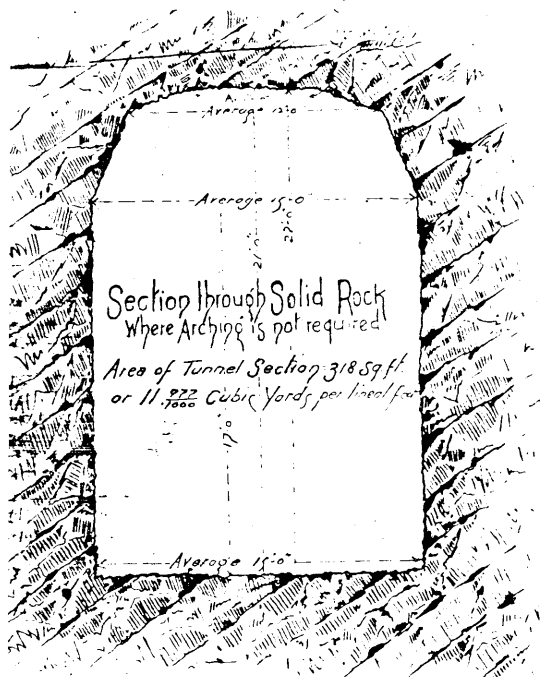 Average 12'0
Average 15'-0"
22'-0
21'-0"
Section through Solid Rock
Where Arching is not required
Area of Tunnel Section 318 sq ft.
or 11 777/1000 Cubic Yards per lineal foot
17'0
Average 15'-0"